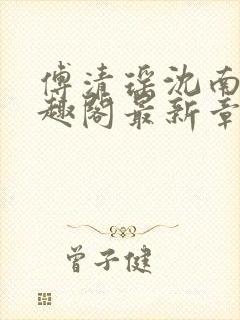 傅清瑶沈南
趣阁最新章
曾子健